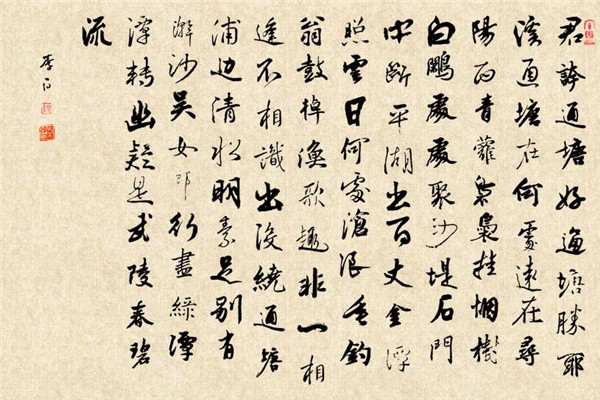 君誇通塘好通塘勝耶
溪通塘在何處遠在尋
陽西青蘿裊裊挂烟樹
白鷴處處聚沙堤石門
中斷平湖出百丈金潭
照雲日何處滄浪垂釣
翁鼓棹漁歌趣非一相
逢不相識出沒繞通塘
浦边清水明素足别有
澣沙吴女郎行盡綠潭
潭轉幽疑是武陵春碧
流
李白